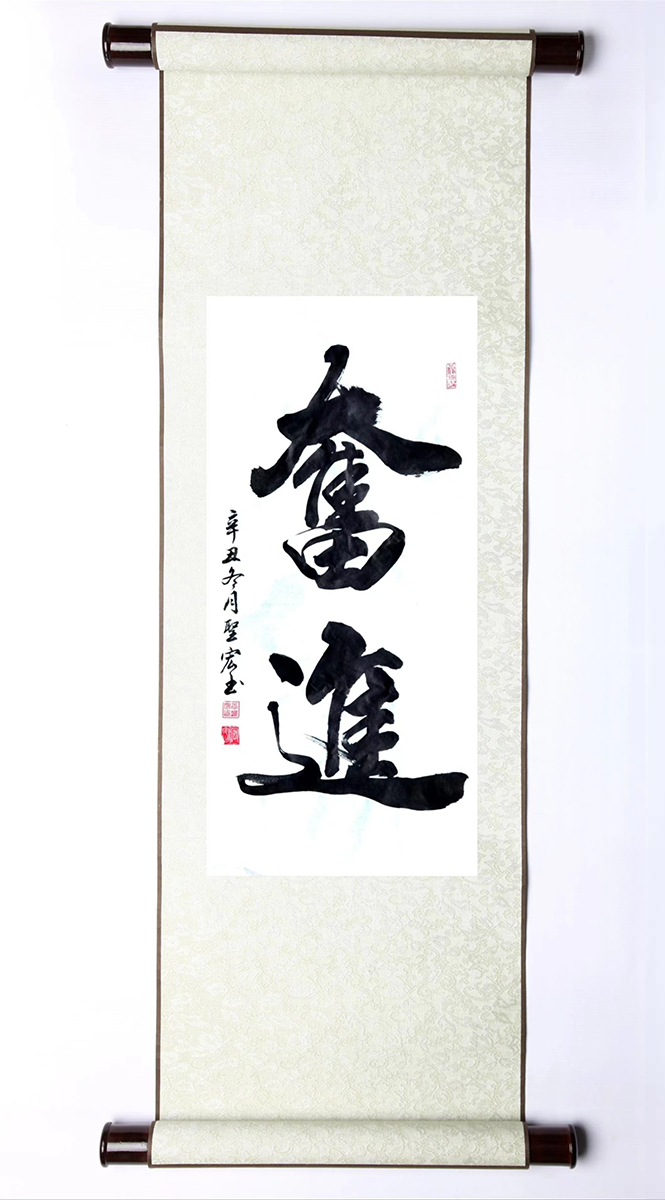 奮進
辛丑冬月聖宏書